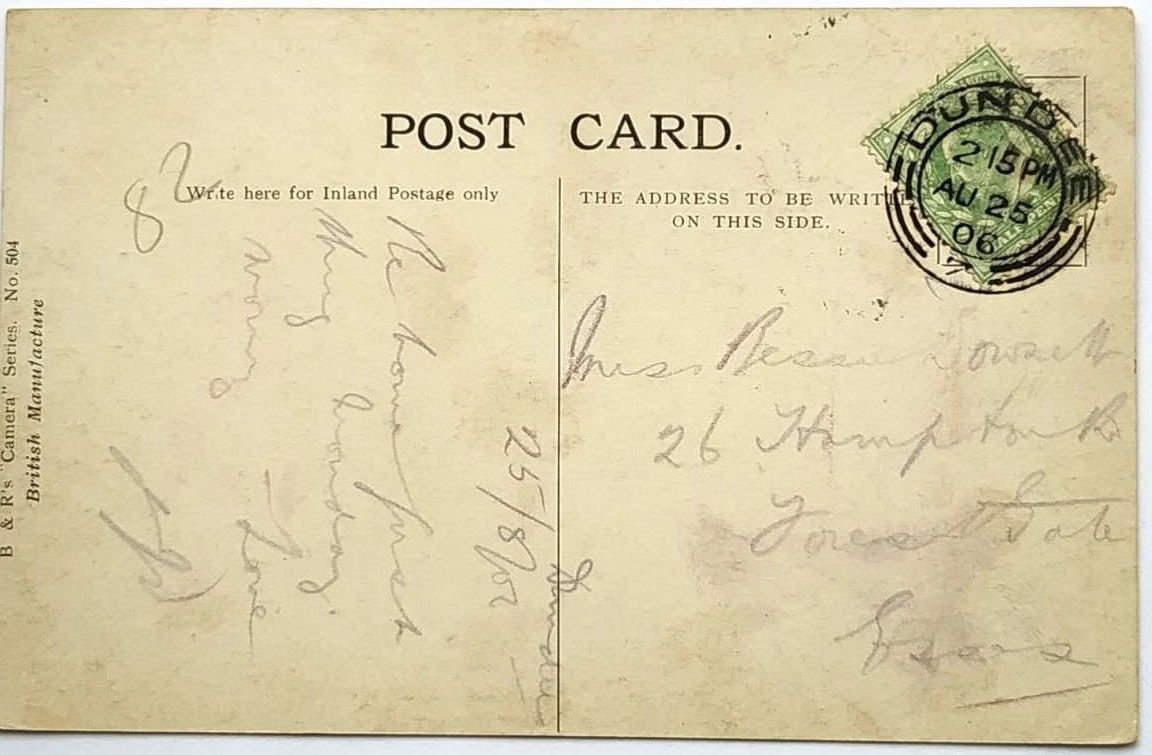 POST CARD.
Write here for Inland Postage only
THE ADDRESS TO BE WRITTE
ON THIS SIDE.
DUNDEE
2 15 PM
AU 25
06
7
B & R's "Camera" Series. No. 504
British Manufacture
82
Dundee
25/8/
Be home first
thing Monday
morng
Love
Miss Bessie Dowsett
26 Hampton Rd
Forest Gate
Essex